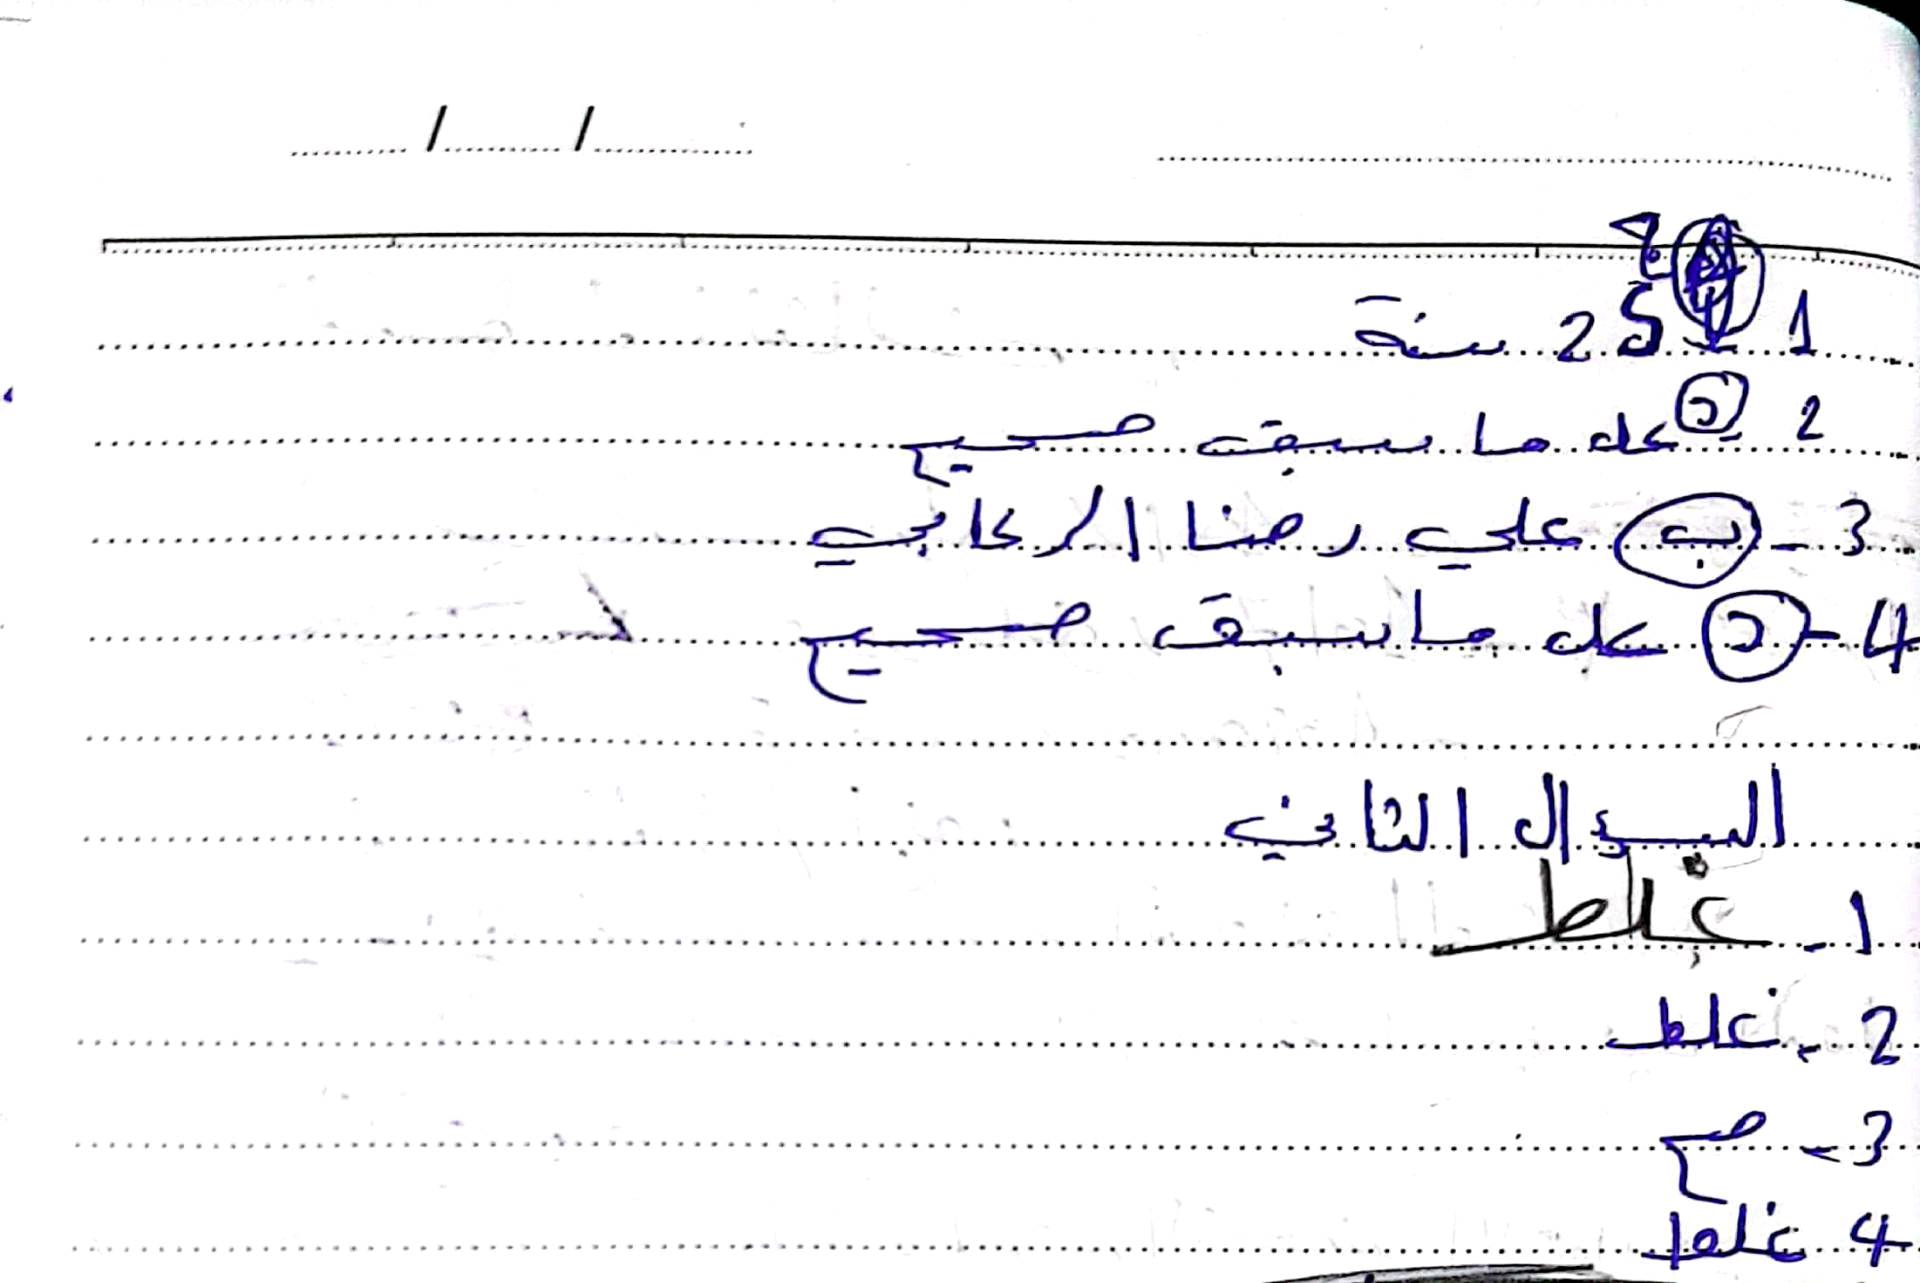 1 ج 25 سنة
2 - د كل ما سبق صحيح
3 - ب علي رضا الركابي
4 - د كل ما سبق صحيح
السؤال الثاني
1 - غلط
2 - غلط
3 - صح
4 غلط